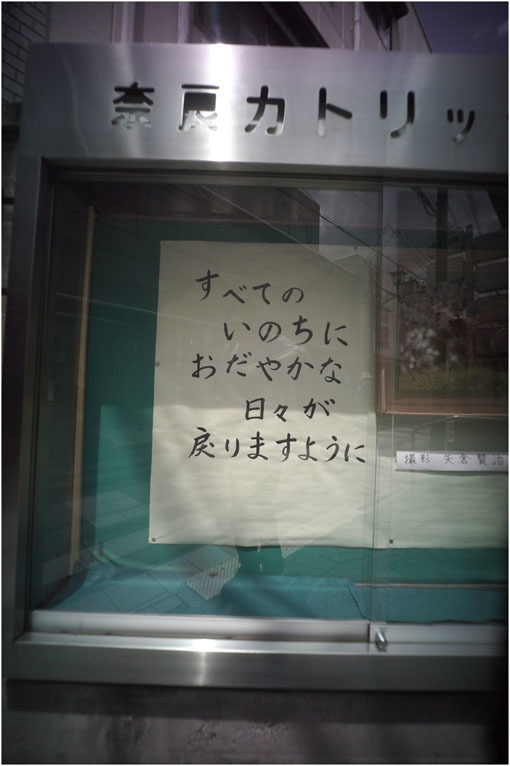 奈良カトリッ
すべての
いのちに
おだやかな
日々が
戻りますように
撮影 矢倉賢治